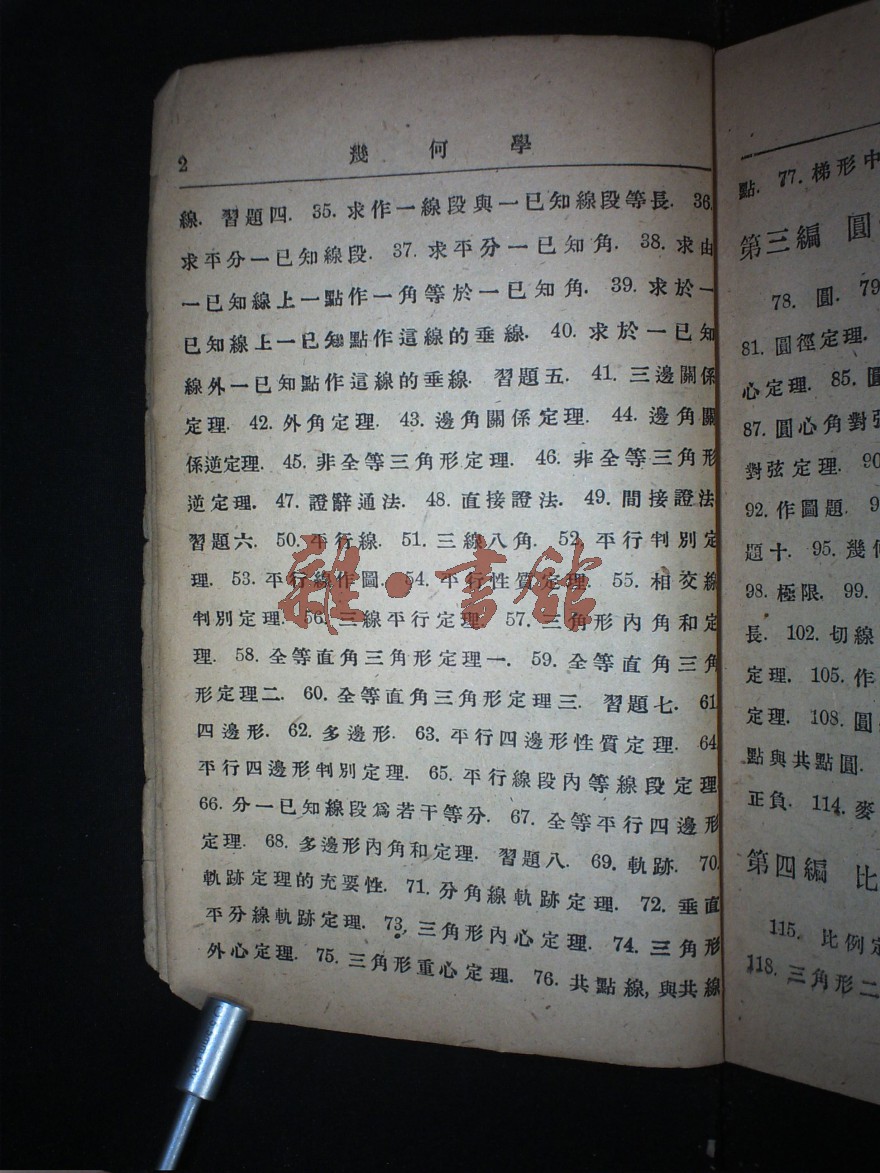 2 幾何學
線. 習題四. 35. 求作一線段與一已知線段等長. 36.
求平分一已知線段. 37. 求平分一已知角. 38. 求由
一已知線上一點作一角等於一已知角. 39. 求於一
已知線上一已知點作這線的垂線. 40. 求於一已知
線外一已知點作這線的垂線. 習題五. 41. 三邊關係
定理. 42. 外角定理. 43. 邊角關係定理. 44. 邊角關
係逆定理. 45. 非全等三角形定理. 46. 非全等三角形
逆定理. 47. 證辭通法. 48. 直接證法. 49. 間接證法
習題六. 50. 平行線. 51. 三線八角. 52. 平行判別定
理. 53. 平行線作圖. 54. 平行性質定理. 55. 相交線
判別定理. 56. 三線平行定理. 57. 三角形內角和定
理. 58. 全等直角三角形定理一. 59. 全等直角三角
形定理二. 60. 全等直角三角形定理三. 習題七. 61
四邊形. 62. 多邊形. 63. 平行四邊形性質定理. 64
平行四邊形判別定理. 65. 平行線段內等線段定理
66. 分一已知線段爲若干等分. 67. 全等平行四邊形
定理. 68. 多邊形內角和定理. 習題八. 69. 軌跡. 70.
軌跡定理的充要性. 71. 分角線軌跡定理. 72. 垂直
平分線軌跡定理. 73. 三角形內心定理. 74. 三角形
外心定理. 75. 三角形重心定理. 76. 共點線, 與共線
點. 77. 梯形中
第三編 圓
78. 圓. 79
81. 圓徑定理.
心定理. 85. 圓
87. 圓心角對弦
對弦定理. 90
92. 作圖題. 9
題十. 95. 幾何
98. 極限. 99.
長. 102. 切線
定理. 105. 作
定理. 108. 圓
點與共點圓.
正負. 114. 麥
第四編 比
115. 比例定
118. 三角形二
雜·書館